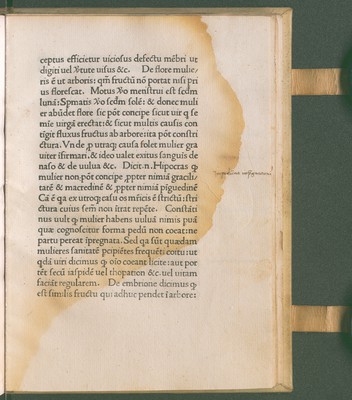 ceptus efficietur uiciosus defectu mẽbri ut
digiti uel x̃tute uisus &c. De flore mulie,
ris ẽ ut arboris: qm̃ fructũ nõ portat nisi pri
us florescat. Motus x̃o menstrui est fcd̃m
lunã: Spmatis x̃o fcd̃m solẽ: & donec muli
er abũdet flore sic põt concipe sicut uir q̃ se
mie uirgã erectat: & sicut multis causis con
tigit fluxus fructus ab arbore: ita põt constri
ctura. Vnde ꝓ utraq; causa folet mulier gra
uiter ifirmari. & ideo ualet exitus sanguis de
naso & de uulua &c. Dicit.n. Hipocras q
mulier non põt concipe ,ppter nimiã gracili,
tatẽ & macredinẽ & ,ppter nimiã pĩguedinẽ
Cã ẽ qa ex utroq; casu os mr̃icis ẽ strictũ: stri
ctura cuius sem̃ non itrat repẽte. Constãti
nus uult q mulier habens uuluã nimis puã
quæ cognoscitur forma pedũ non coeat: ne
partu pereat ipregnata. Sed qa sũt quædam
mulieres sanitatẽ pcipiẽtes frequẽti coitu: ut
qdã uiri dicimus q oĩo coeant licite: aut por
tẽt secũ iaspidẽ uel thopation &c. uel uitam
faciãt regularem. De embrione dicimus q
est similis fructu qui adhuc pendet i arbore: